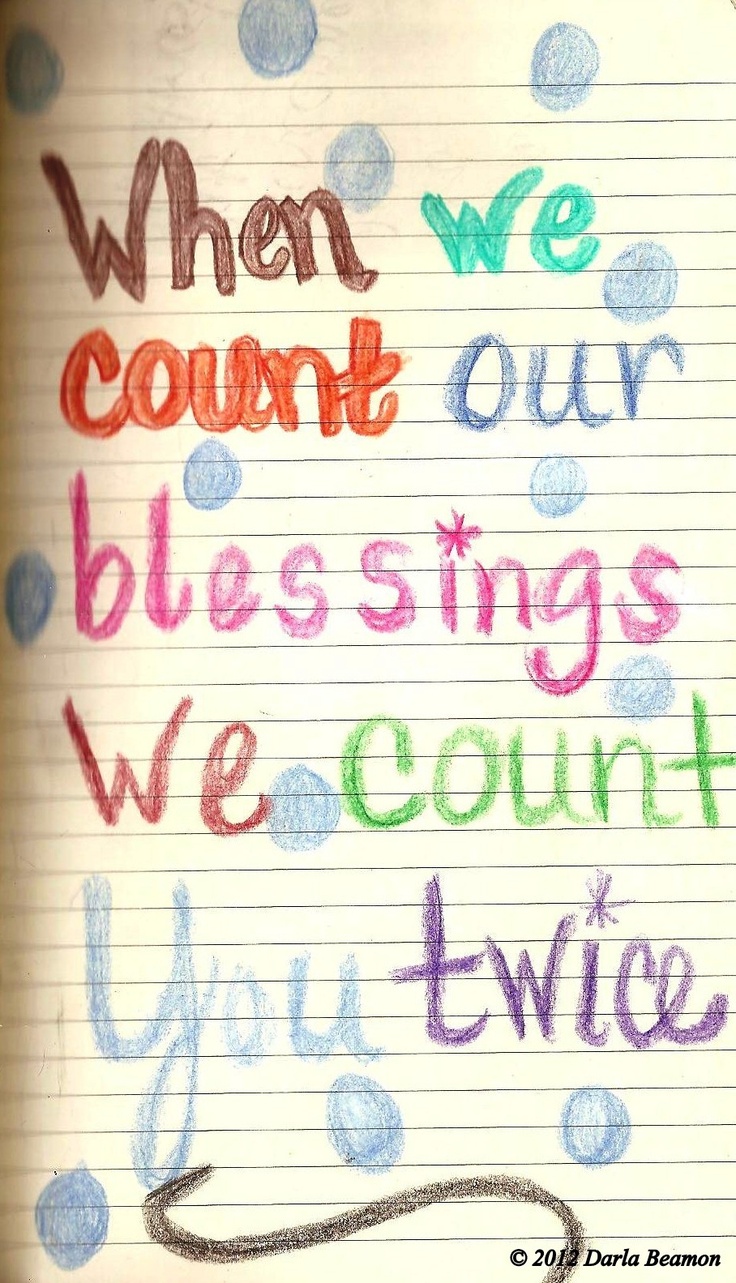 When we
count our
blessings
We count
You twice
© 2012 Darla Beamon